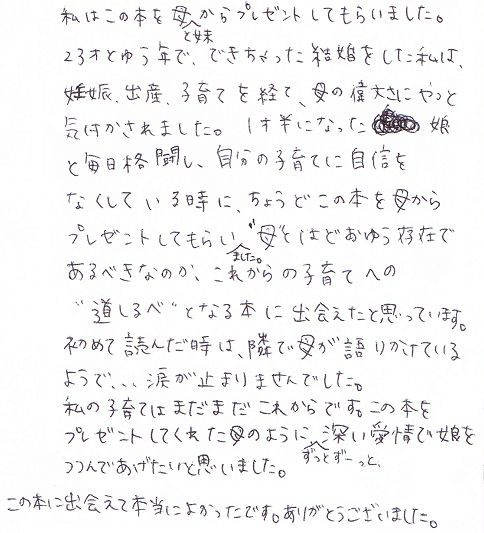 私はこの本を母と妹からプレゼントしてもらいました。
23才とゆう年で、できちゃった結婚をした私は、
妊娠、出産、子育てを経て、母の偉大さにやっと
気付かされました。1才半になった 娘
と毎日格闘し、自分の子育てに自信を
なくしている時に、ちょうどこの本を母から
プレゼントしてもらいました。"母"とはどおゆう存在で
あるべきなのか、これからの子育てへの
"道しるべ"となる本に出会えたと思っています。
初めて読んだ時は、隣で母が語りかけている
ようで、、、涙が止まりませんでした。
私の子育てはまだまだこれからです。この本を
プレゼントしてくれた母のように、ずっとずーっと、深い愛情で娘を
つつんであげたいと思いました。
この本に出会えて本当によかったです。ありがとうございました。